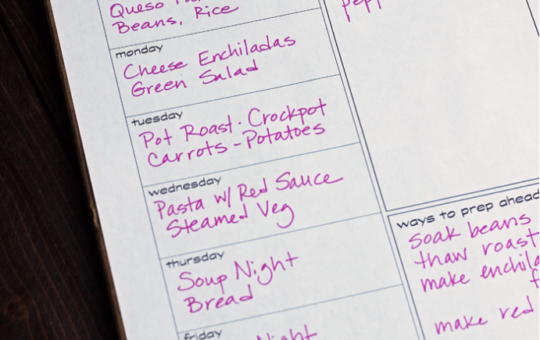 Queso
Beans, Rice
monday
Cheese Enchiladas
Green Salad
tuesday
Pot Roast · Crockpot
Carrots - Potatoes
wednesday
Pasta w/ Red Sauce
Steamed Veg
thursday
Soup Night
Bread
friday
Night
ways to prep ahead
soak beans
thaw roast
make
make red